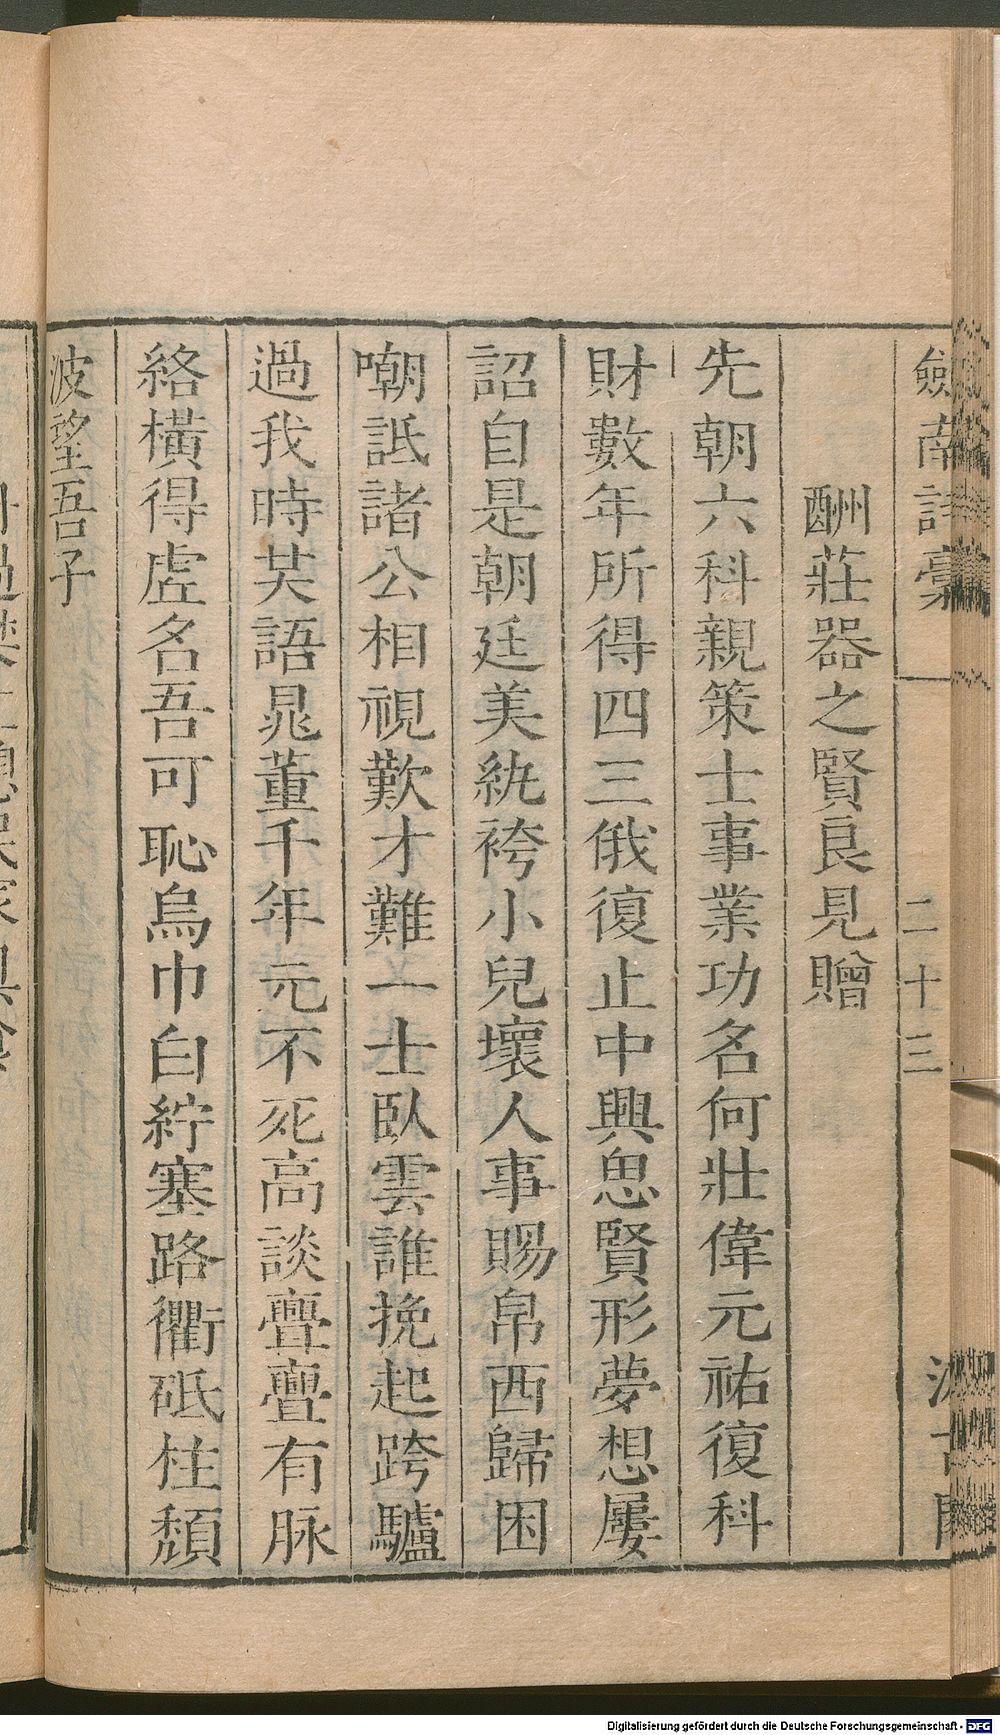 劍南詩稾
二十三
酬莊器之賢良見贈
先朝六科親策士事業功名何壯偉元祐復科
財數年所得四三俄復止中興思賢形夢想屢
詔自是朝廷美紈袴小兒壞人事賜帛西歸困
嘲詆諸公相視歎才難一士臥雲誰挽起跨驢
過我時共語晁董千年元不死高談亹亹有脉
絡橫得虛名吾可恥烏巾白紵塞路衢砥柱頹
波望吾子
Digitalisierung gefördert durch die Deutsche Forschungsgemeinschaft - DFG